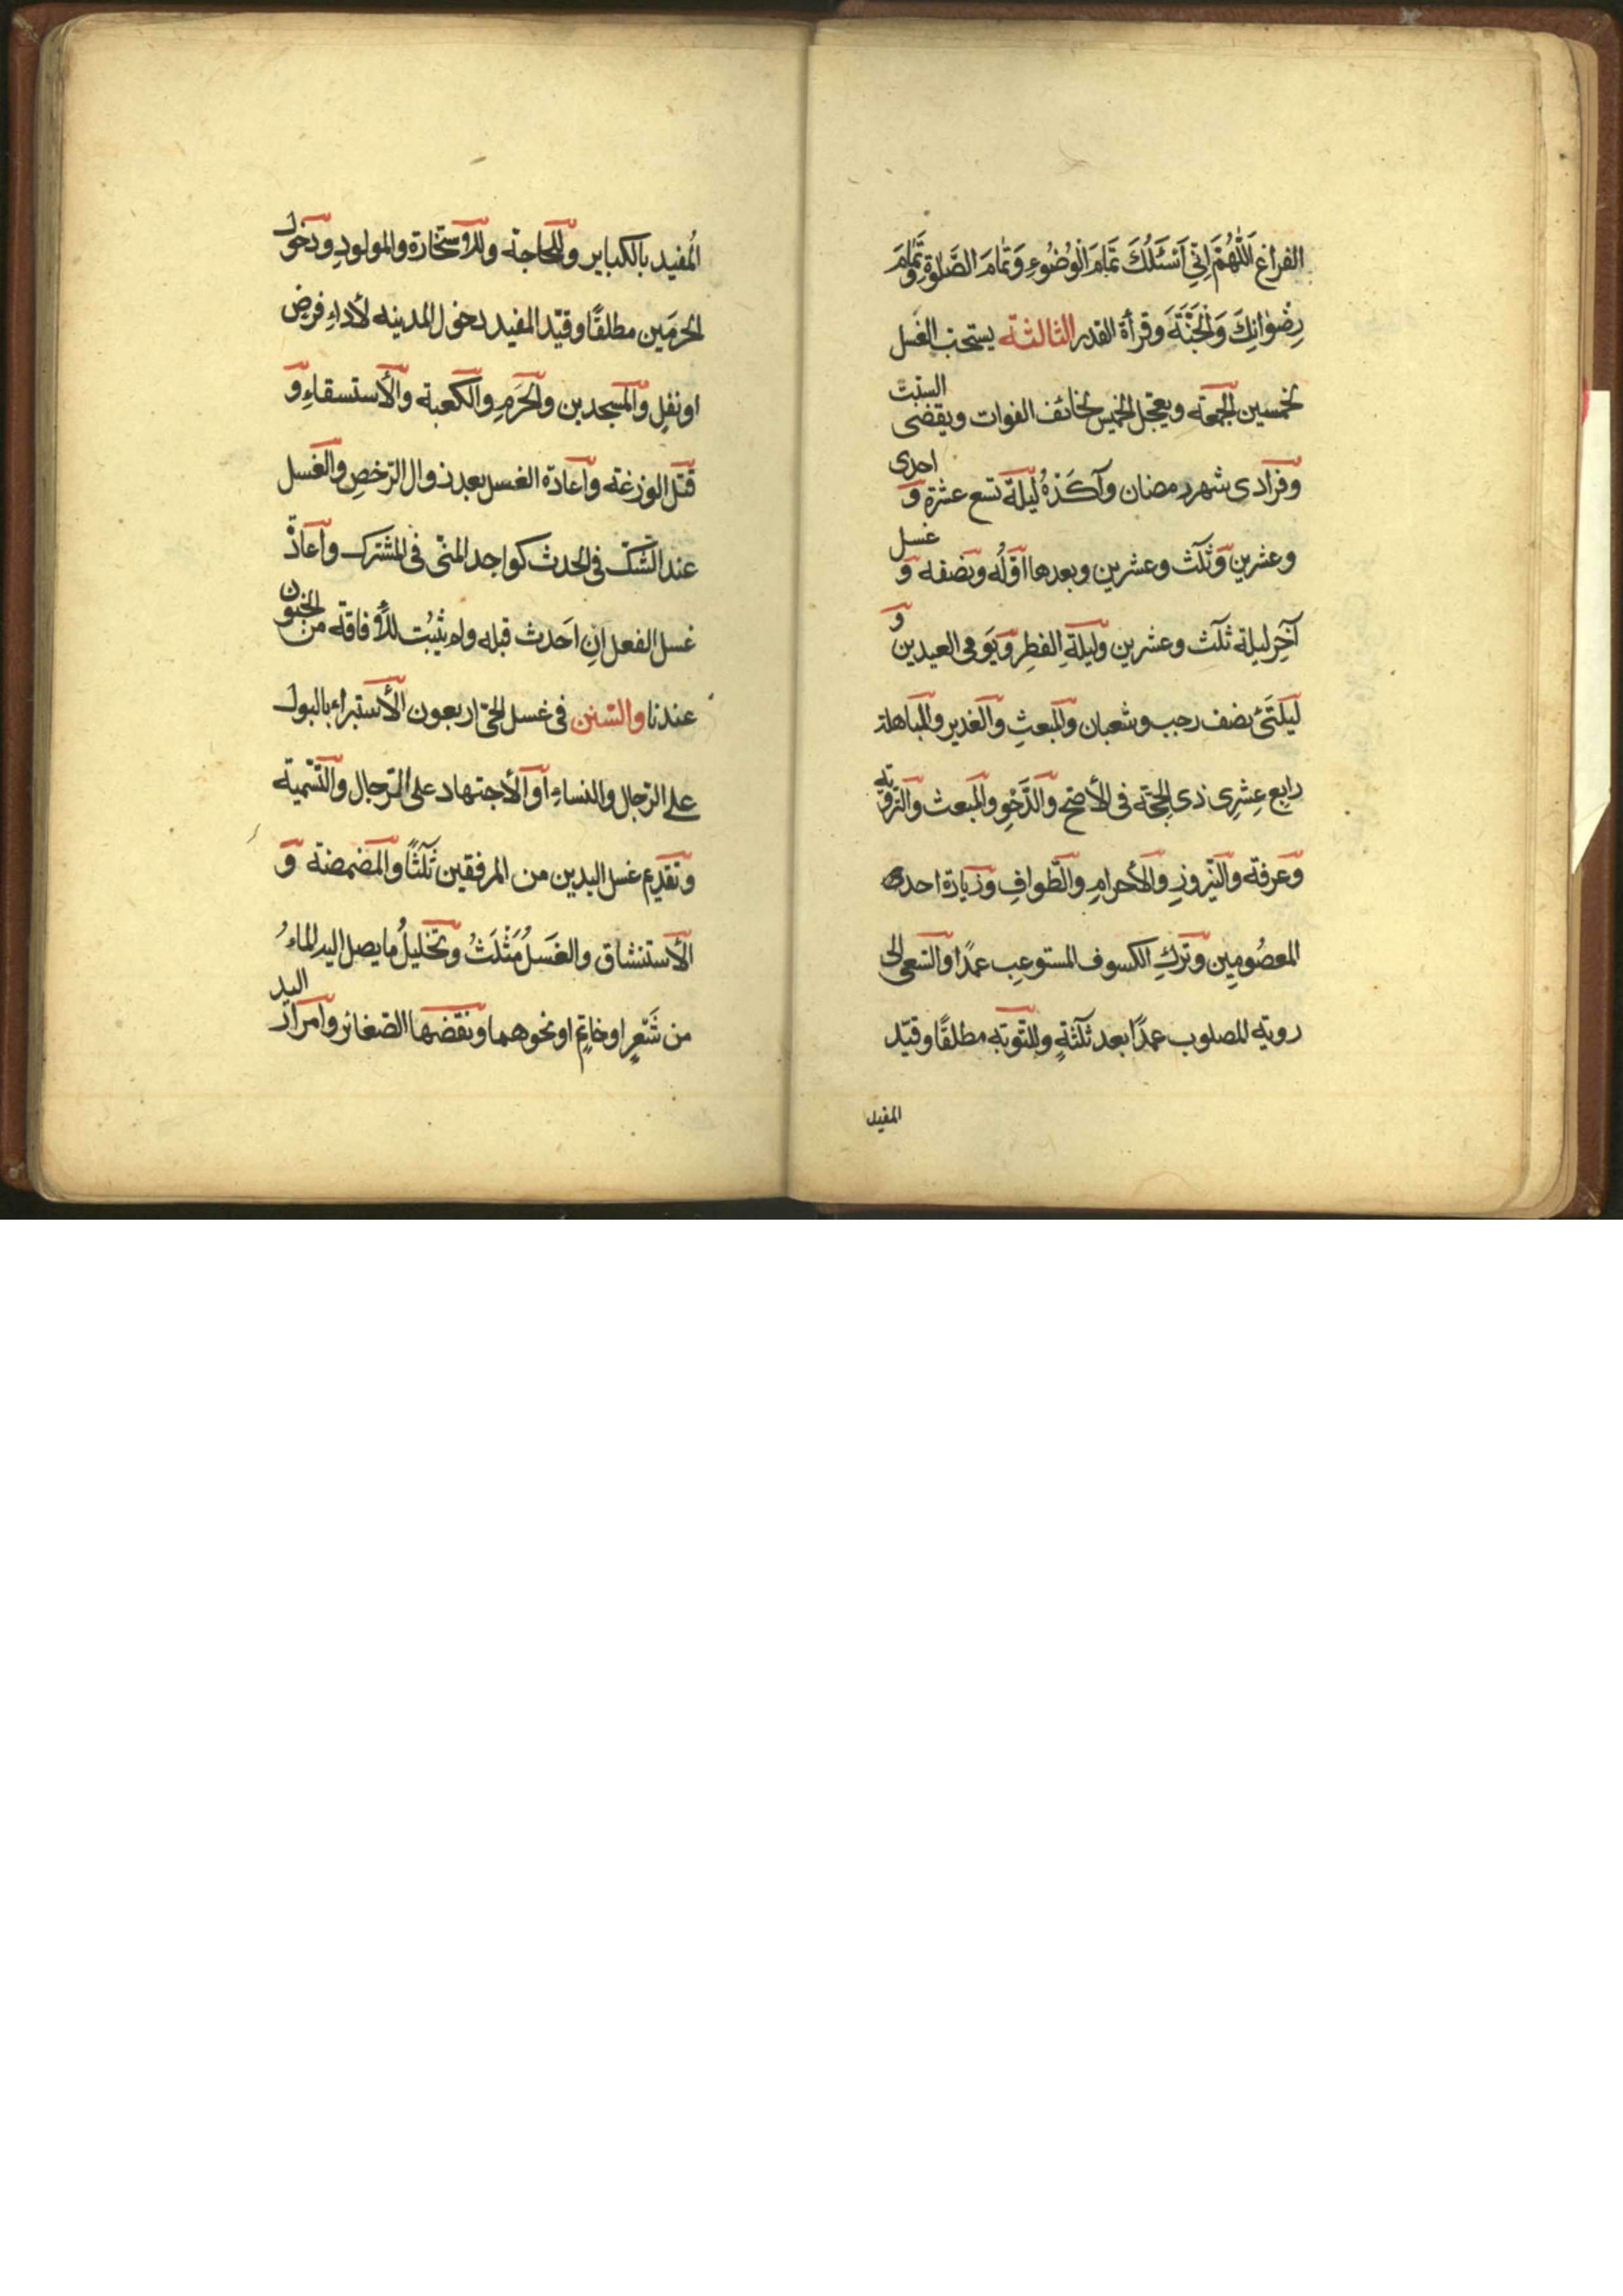 الفراغ اَللّٰهُمَّ اِنّي اَسْئَلُكَ تَمَامَ الْوُضُوءِ وَتَمَامَ الصَّلٰوةِ وَتَمَامَ
رِضْوَانِكَ وَالْجَنَّةَ وَقرأة القدر الثالثة يستحب الغسل
لخمسين الجمعة ويعجل الخميس لخائف الفوات ويقضى السبت
وفرادى شهر رمضان وآكَدُهُ ليلة تسع عشرة و احدى
وعشرين وثلث وعشرين وبعدها اوّله ونصفه و غسل
آخر ليلة ثلث وعشرين وليلة الفطر ويومى العيدين و
ليلتى نصف رجب وشعبان والمبعث والغدير والمباهلة
رابع عشرى ذى الحجة فى الأصح والدَّحْوِ والمبعث والتروية
وعرفة والنيروز والأحرام والطواف وزيارة احد
المعصومين وترك الكسوف المستوعب عمدًا والسعى الى
روية المصلوب عمدًا بعد ثلثةٍ وللتوبة مطلقًا وقيّد
المفيد
المُفيد بالكباير وللحاجة وللأستخارة والمولود ودخول
الحرمَين مطلقًا وقيّد المفيد دخول المدينه لأداء فرض
او نفل والمسجدين والحَرَم والكعبة والأستسقاء و
قتل الوزغة واعادة الغسل بعد زوال الرخص والغسل
عند الشكّ فى الحدث كواجد المنّى فى المشترك واعادة
غسل الفعل اِن اَحدث قبله ولم يثبُت للأفاقة من الجنون
عندنا والسنن فى غسل الحىّ اربعون الأستبراء بالبول
على الرّجال والنساء او الأجتهاد على الرّجال والتّسمية
وتقديم غسل اليدين من المرفقين ثلثًا والمضمضة و
الأستنشاق والغسلُ مَثْلَثُ وتخليلُ ما يصل اليه الماءُ
من شَعرٍ او خاتمٍ او نحوهما ونقضها الضغائر وامرار اليد